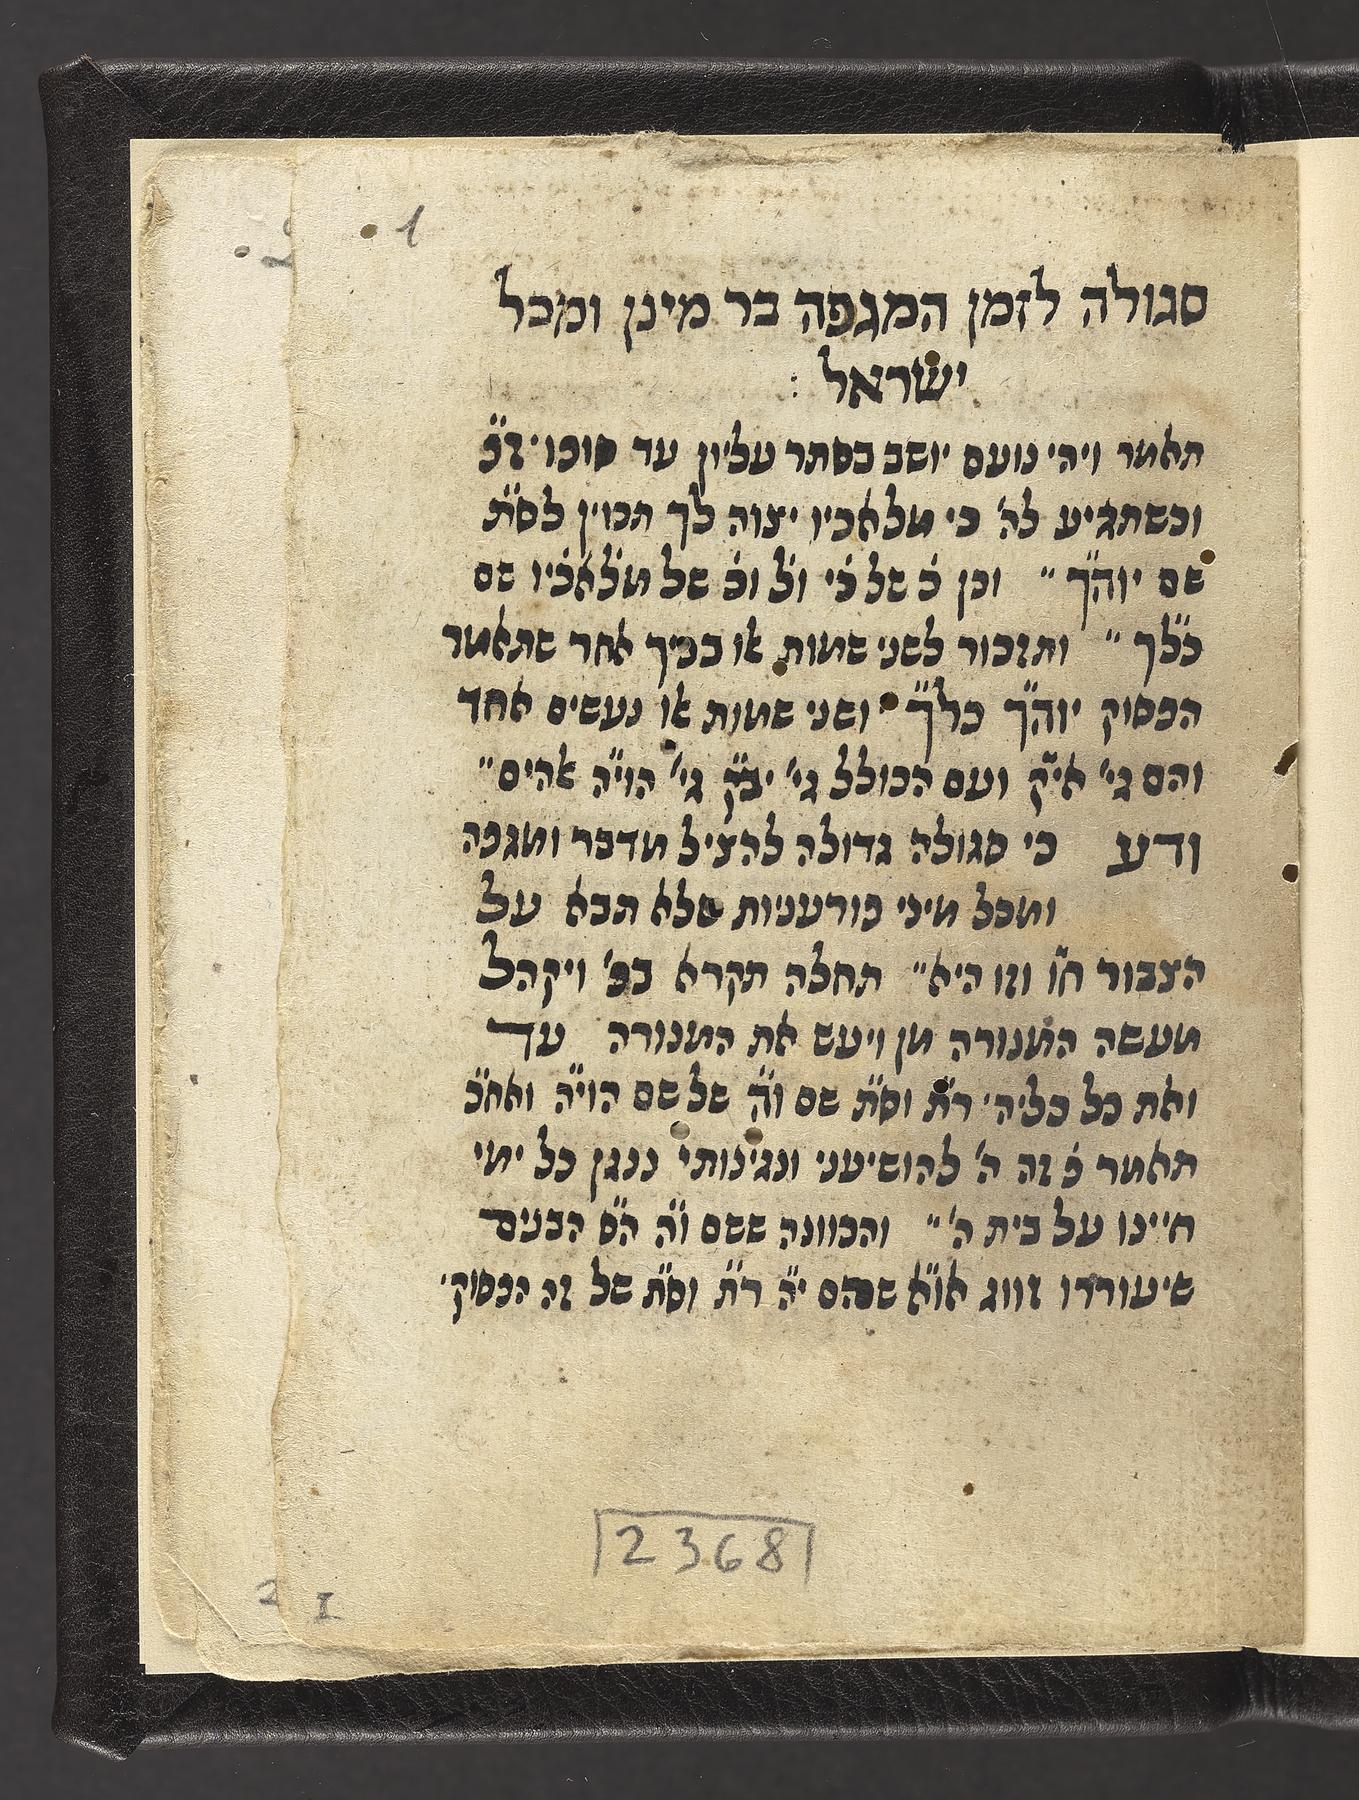 1
סגולה לזמן המגפה בר מינן ומכל
ישראל :
תאמר ויהי נועם יושב בסתר עליון עד סופו ז״פ
וכשתגיע לה׳ כי מלאכיו יצוה לך תכוין לס״ת
שם יוה״ך ״ וכן כ׳ של כ׳י ול׳ וכ׳ של מל׳אכ׳יו שם
כל״ך ״ ותזכור לשני שמות או בכיך אחר שתאמר
הפסוק יוה״ך כל״ך ״ ושני שמות או נעשים אחד
והם גי׳ אי״ק ועם הכולל גי׳ יב״ק גי׳ הוי״ה אהים ״
ודע כי סגולה גדולה להציל מדבר ומגפה
ומכל מיני פורעניות שלא תבא על
הצבור ח״ו וזו היא ״ תחלה תקרא בפ׳ ויקהל
מעשה המנורה מן ויעש את המנורה עד
ואת כל כליה׳ ר״ת וס״ת שם ו״ה של שם הוי״ה ואח״כ
תאמר פ׳ זה ה׳ להושיעני ונגינותי ננגן כל ימי
חיינו על בית ה׳ ״ והכוונה ששם ו״ה ה״ס הבנים
שיעוררו זווג או״א שהם י״ה ר״ת וס״ת של זה הפסוק׳
2368
2 I